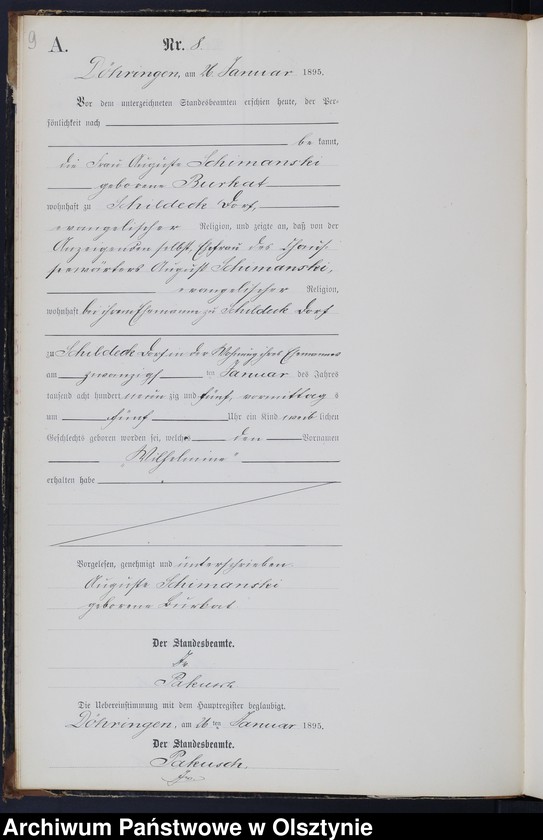 9
A. Nr. 8
Döhringen, am 26 Januar 1895.
Vor dem unterzeichneten Standesbeamten erschien heute, der Per-
sönlichkeit nach
be kannt,
die Frau Auguste Schimanski
geborene Burkat
wohnhaft zu Schildeck Dorf,
evangelischer Religion, und zeigte an, daß von der
Anzeigenden selbst, Ehefrau des Chaus-
seewärters August Schimanski,
evangelischer Religion,
wohnhaft bei ihrem Ehemanne zu Schildeck Dorf
zu Schildeck Dorf in der Wohnung ihres Ehemannes
am zwanzigs ten Januar des Jahres
tausend acht hundert neun zig und fünf, vormittag s
um fünf Uhr ein Kind weib lichen
Geschlechts geboren worden sei, welches den Vornamen
"Wilhelmine"
erhalten habe
Vorgelesen, genehmigt und unterschrieben
Auguste Schimanski
geborene Burkat
Der Standesbeamte.
Pakusch
Die Uebereinstimmung mit dem Hauptregister beglaubigt.
Döhringen, am 26 ten Januar 1895.
Der Standesbeamte.
Pakusch.
Archiwum Państwowe w Olsztynie